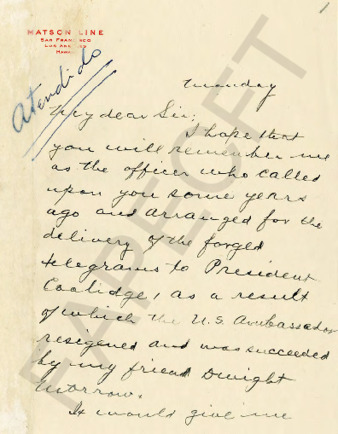 MATSON LINE
SAN FRANCISCO
LOS ANGELES
Atendido
Monday
My dear Sir;
I hope that
you will remember me
as the officer who called
upon you some years
ago and arranged for the
delivery of the forged
telegrams to President
Coolidge, as a result
of which the U.S. Ambassador
resigened and was succeeded
by my friend Dwight
Morrow.
It would give me